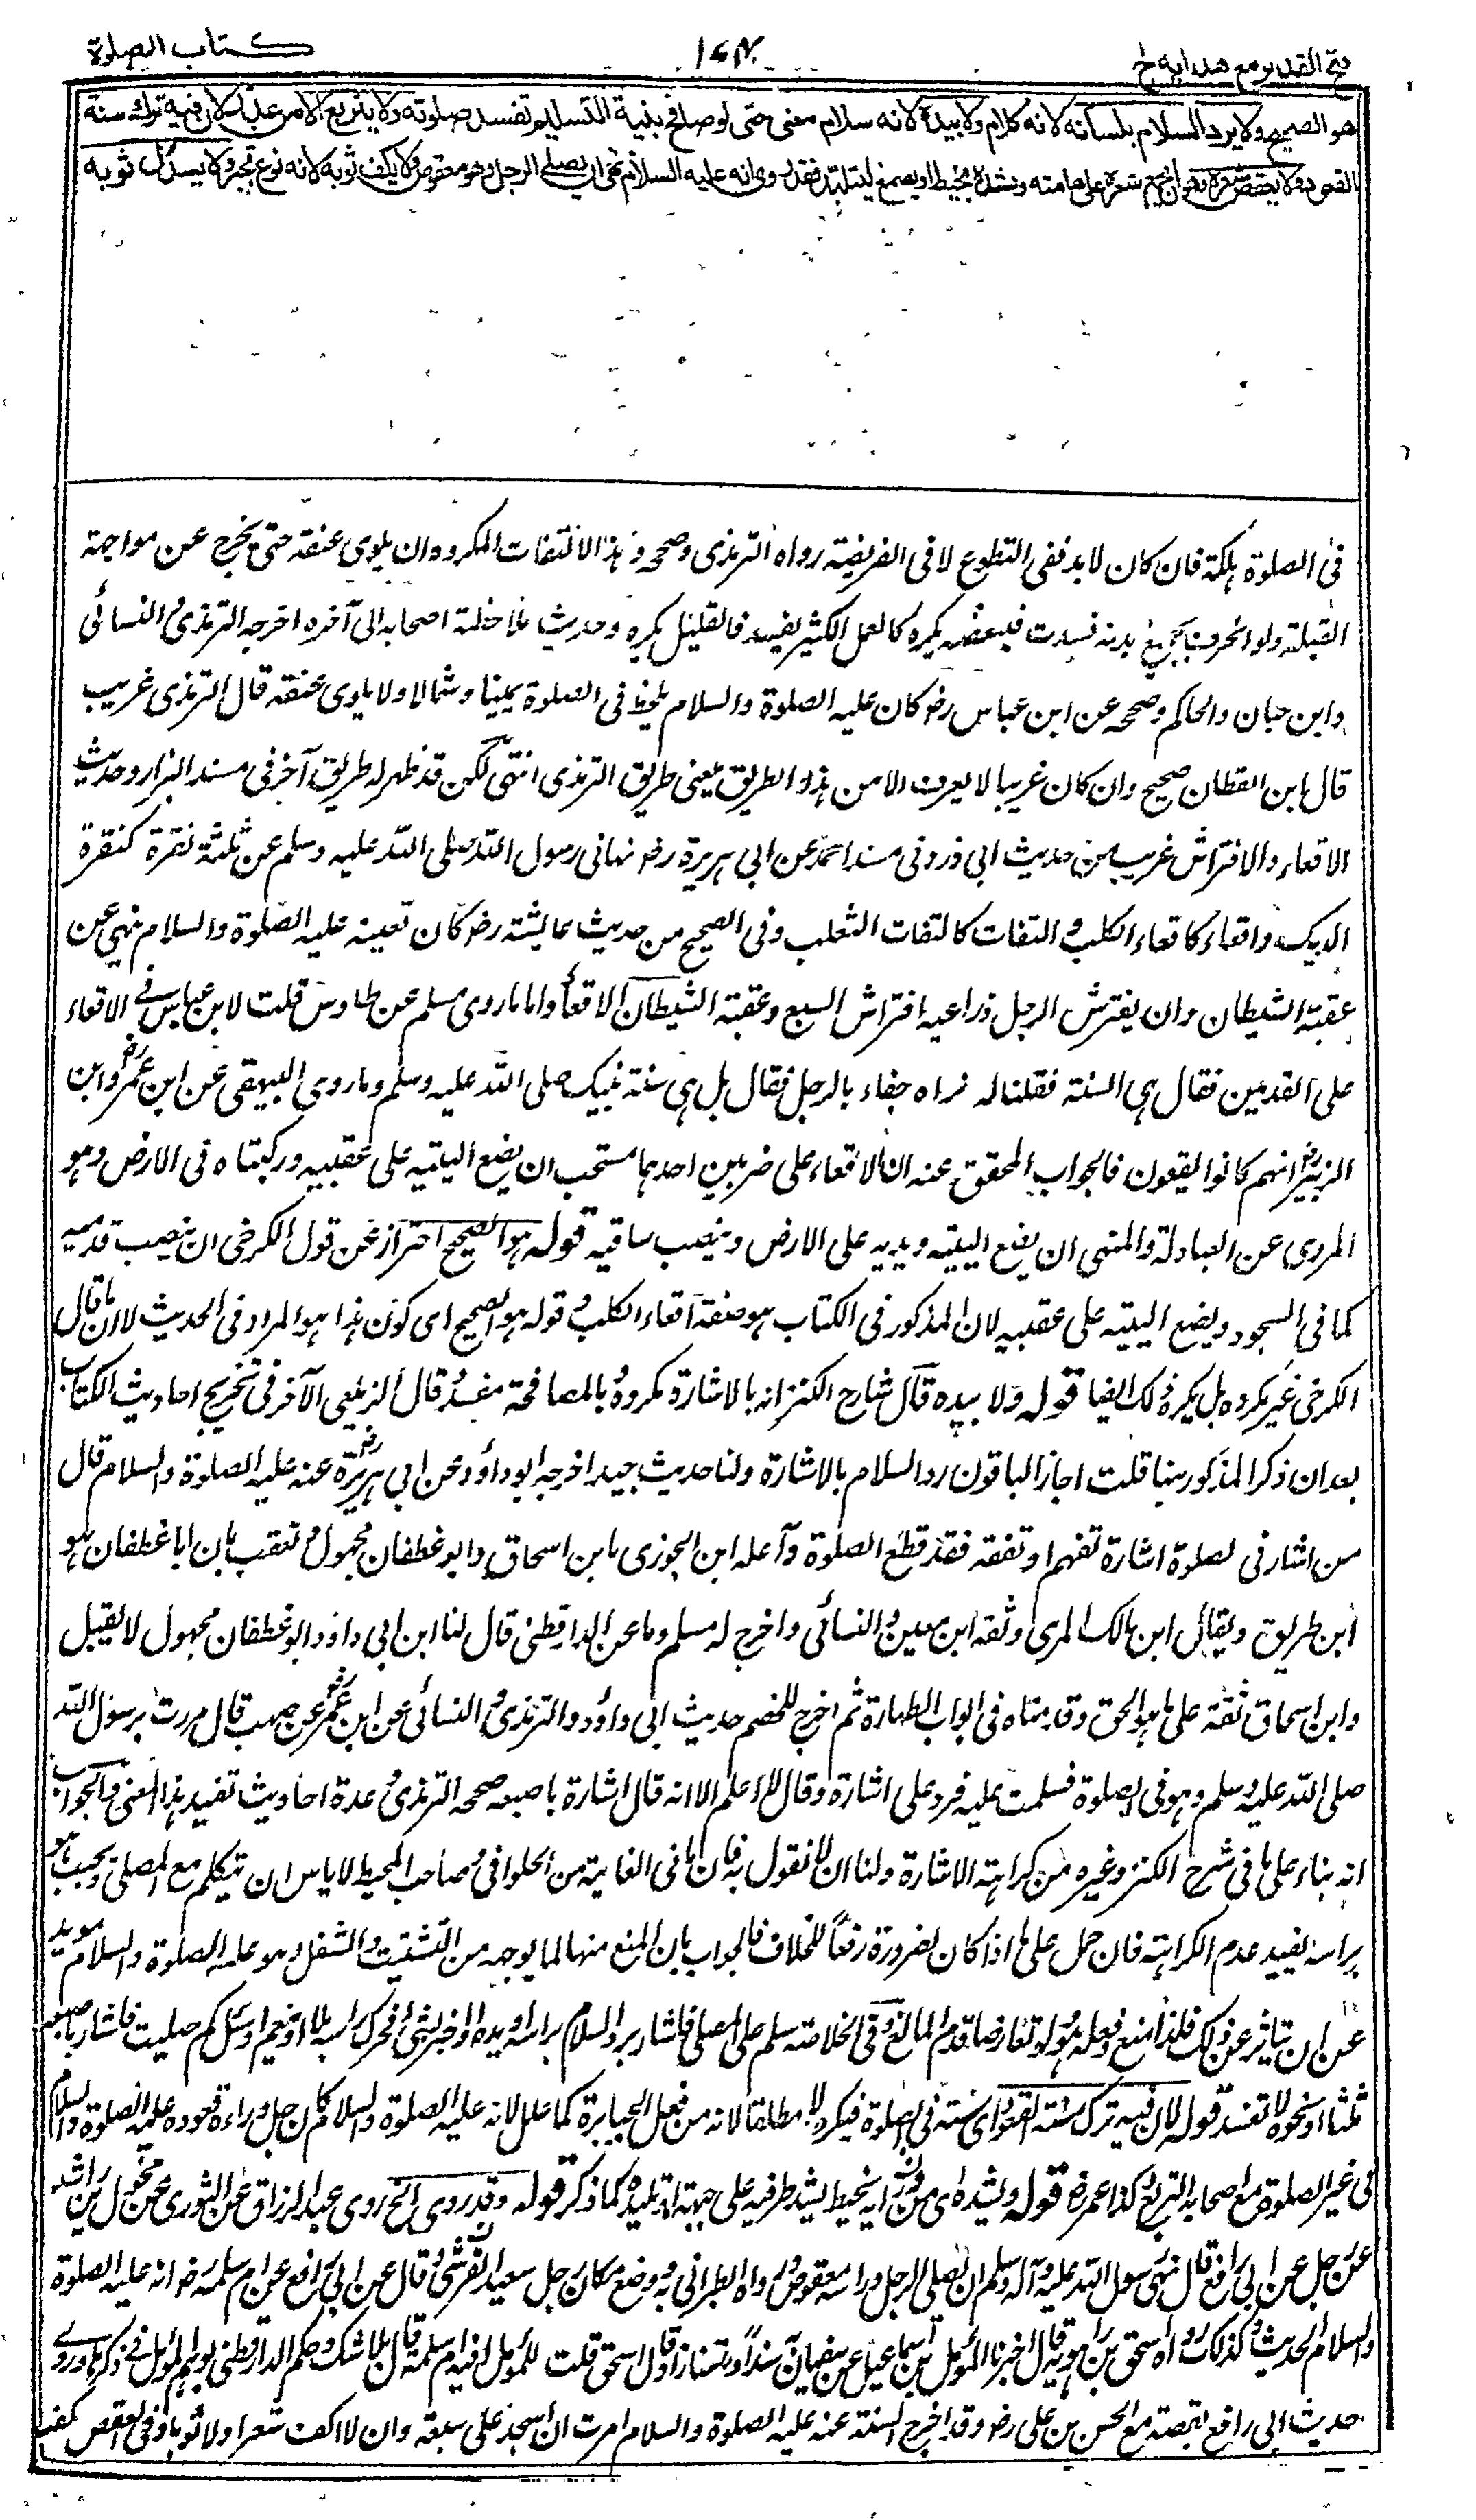 فتح القدير مع هدايه ج ا
١٧٤
كتاب الصلوة
هو الصحيح ولا يرد السلام بلسانه لانه كلام ولا بيده لانه سلام معنى حتى لو صافح بنية التسليم تفسد صلوته ولا يتربع الا من عذر لان فيه ترك سنة
القعود ولا يعقص شعره وهو ان يجمع شعره على هامته ويشده بخيط او بصمغ ليتلبد فقد روى انه عليه السلام نهى ان يصلي الرجل وهو معقوص ولا يكف ثوبه لانه نوع تجبر ولا يسدل ثوبه
فى الصلوة هلكة فان كان لا بد ففى التطوع لا فى الفريضة رواه الترمذى وصححه وهذا الالتفات المكروه ان يلوى عنقه حتى يخرج عن مواجهة
القبلة ولو انحرف بجميع بدنه فسدت فببعضه يكره كالعمل الكثير يفسد فالقليل يكره وحديث ملاحظة اصحابه الى آخره اخرجه الترمذى والنسائى
وابن حبان والحاكم وصححه عن ابن عباس رضه كان عليه الصلوة والسلام يلحظ فى الصلوة يمينا وشمالا ولا يلوى عنقه قال الترمذى غريب
قال ابن القطان صحيح وان كان غريبا لا يعرف الا من هذه الطريق يعنى طريق الترمذى انتهى لكن قد ظهر له طريق آخر فى مسند البزار وحديث
الاقعاء والافتراش غريب من حديث ابى ذر وفى مسند احمد عن ابى هريرة رضه نهانى رسول الله صلى الله عليه وسلم عن ثلثة نقرة كنقرة
الديك واقعاء كاقعاء الكلب والتفات كالتفات الثعلب وفى الصحيح من حديث عايشة رضه كان تعينه عليه الصلوة والسلام نهى عن
عقبة الشيطان وان يفترش الرجل ذراعيه افتراش السبع وعقبة الشيطان الاقعاء واما ما روى مسلم عن طاوس قلت لابن عباس فى الاقعاء
على القدمين فقال هى السنة فقلنا له نراه جفاء بالرجل فقال بل هى سنة نبيك صلى الله عليه وسلم وما روى البيهقى عن ابن عمر رض وابن
الزبير رض انهم كانوا يقعون فالجواب المحقق عنه ان الاقعاء على ضربين احدهما مستحب ان يضع اليتيه على عقبيه وركبتاه فى الارض وهو
المروى عن العبادلة والمنهى ان يضع اليتيه ويديه على الارض وينصب ساقيه قوله هو الصحيح احتراز عن قول الكرخى ان ينصب قدميه
كما فى السجود ويضع اليتيه على عقبيه لان المذكور فى الكتاب هو صفة اقعاء الكلب وقوله هو الصحيح اى كون هذا هو المراد فى الحديث لا ان ما قال
الكرخى غير مكروه بل يكره ذلك ايضا قوله ولا بيده قال شارح الكنز انه بالاشارة مكروه وبالمصافحة مفسد قال الزيلعى الآخر فى تخريج احاديث الكتاب
بعد ان ذكر المذكور هنا قلت اجاز الباقون رد السلام بالاشارة ولنا حديث جيد اخرجه ابو داؤد عن ابى هريرة رض عنه عليه الصلوة والسلام قال
من اشار فى الصلوة اشارة تفهم او تفقه فقد قطع الصلوة وآعله ابن الجوزى بابن اسحاق وابو غطفان مجهول وتعقب بان ابا غطفان هو
ابن طريق ويقال ابن مالك المرى وثقه ابن معين والنسائى واخرج له مسلم وما عن الدارقطنى قال لنا ابن ابى داؤد ابو غطفان مجهول لا يقبل
وابن اسحاق ثقة على ما هو الحق وقدمناه فى ابواب الطهارة ثم اخرج للخصم حديث ابى داؤد والترمذى والنسائى عن ابن عمر رض عن صهيب قال مررت برسول الله
صلى الله عليه وسلم وهو فى الصلوة فسلمت عليه فرد على اشارة وقال لا اعلم الا انه قال اشارة باصبعه صححه الترمذى وعدة احاديث تفيد هذا المعنى والجواب
انه بناء على ما فى شرح الكنز وغيره من كراهة الاشارة ولنا ان لا نقول به فان ما فى الغاية من الحلوانى وصاحب المحيط لا باس ان يتكلم مع المصلى ويجيب هو
براسه يفيد عدم الكراهة فان حمل على ما اذا كان لضرورة رفعا للخلاف فالجواب بان المنع منها لما يوجبه من التشتيت والشغل وهو عليه الصلوة والسلام مويد
عن ان يتاثر عن ذلك فلذا منع وفعله هو ولو تعارضا قدم المانع وفى الخلاصة سلم على المصلى فاشار برد السلام براسه او بيده او اخبر بشئ فحرك راسه بلا او نعم او سئل كم صليت فاشار باصبعه
ثلثا او نحوه لا تفسد قوله لان فيه ترك سنة القعود اى سنته فى الصلوة فيكره لا مطلقا لانه من فعل الجبابرة كما علل لانه عليه الصلوة والسلام كان جل قعوده عليه الصلوة والسلام
فى غير الصلوة مع اصحابه التربع وكذا عمر رض قوله ويشده اى من ورائه بخيط او يشد طرفيه على جبهته او تلبيده كما ذكر قوله وقد روى الخ روى عبد الرزاق عن الثورى عن مخول بن راشد
عن رجل عن ابى رافع قال نهى رسول الله عليه وآله وسلم ان يصلى الرجل وراسه معقوص ورواه الطبرانى به ووضع مكان رجل سعيد المقبرى وقال عن ابى رافع عن ام سلمة رض انه عليه الصلوة
والسلام الحديث وكذلك رواه اسحق بن راهويه قال اخبرنا المؤمل بن اسماعيل عن سفيان به سندا ومتنا زاد قال اسحق قلت للمؤمل افيه ام سلمة قال بلا شك وحكم الدارقطنى بوهم المؤمل فى ذكرها وروى
حديث ابى رافع بقصته مع الحسن بن على رضه وقد اخرج الستة عنه عليه الصلوة والسلام امرت ان اسجد على سبعة وان لا اكف شعرا ولا ثوبا وفى العقص كف